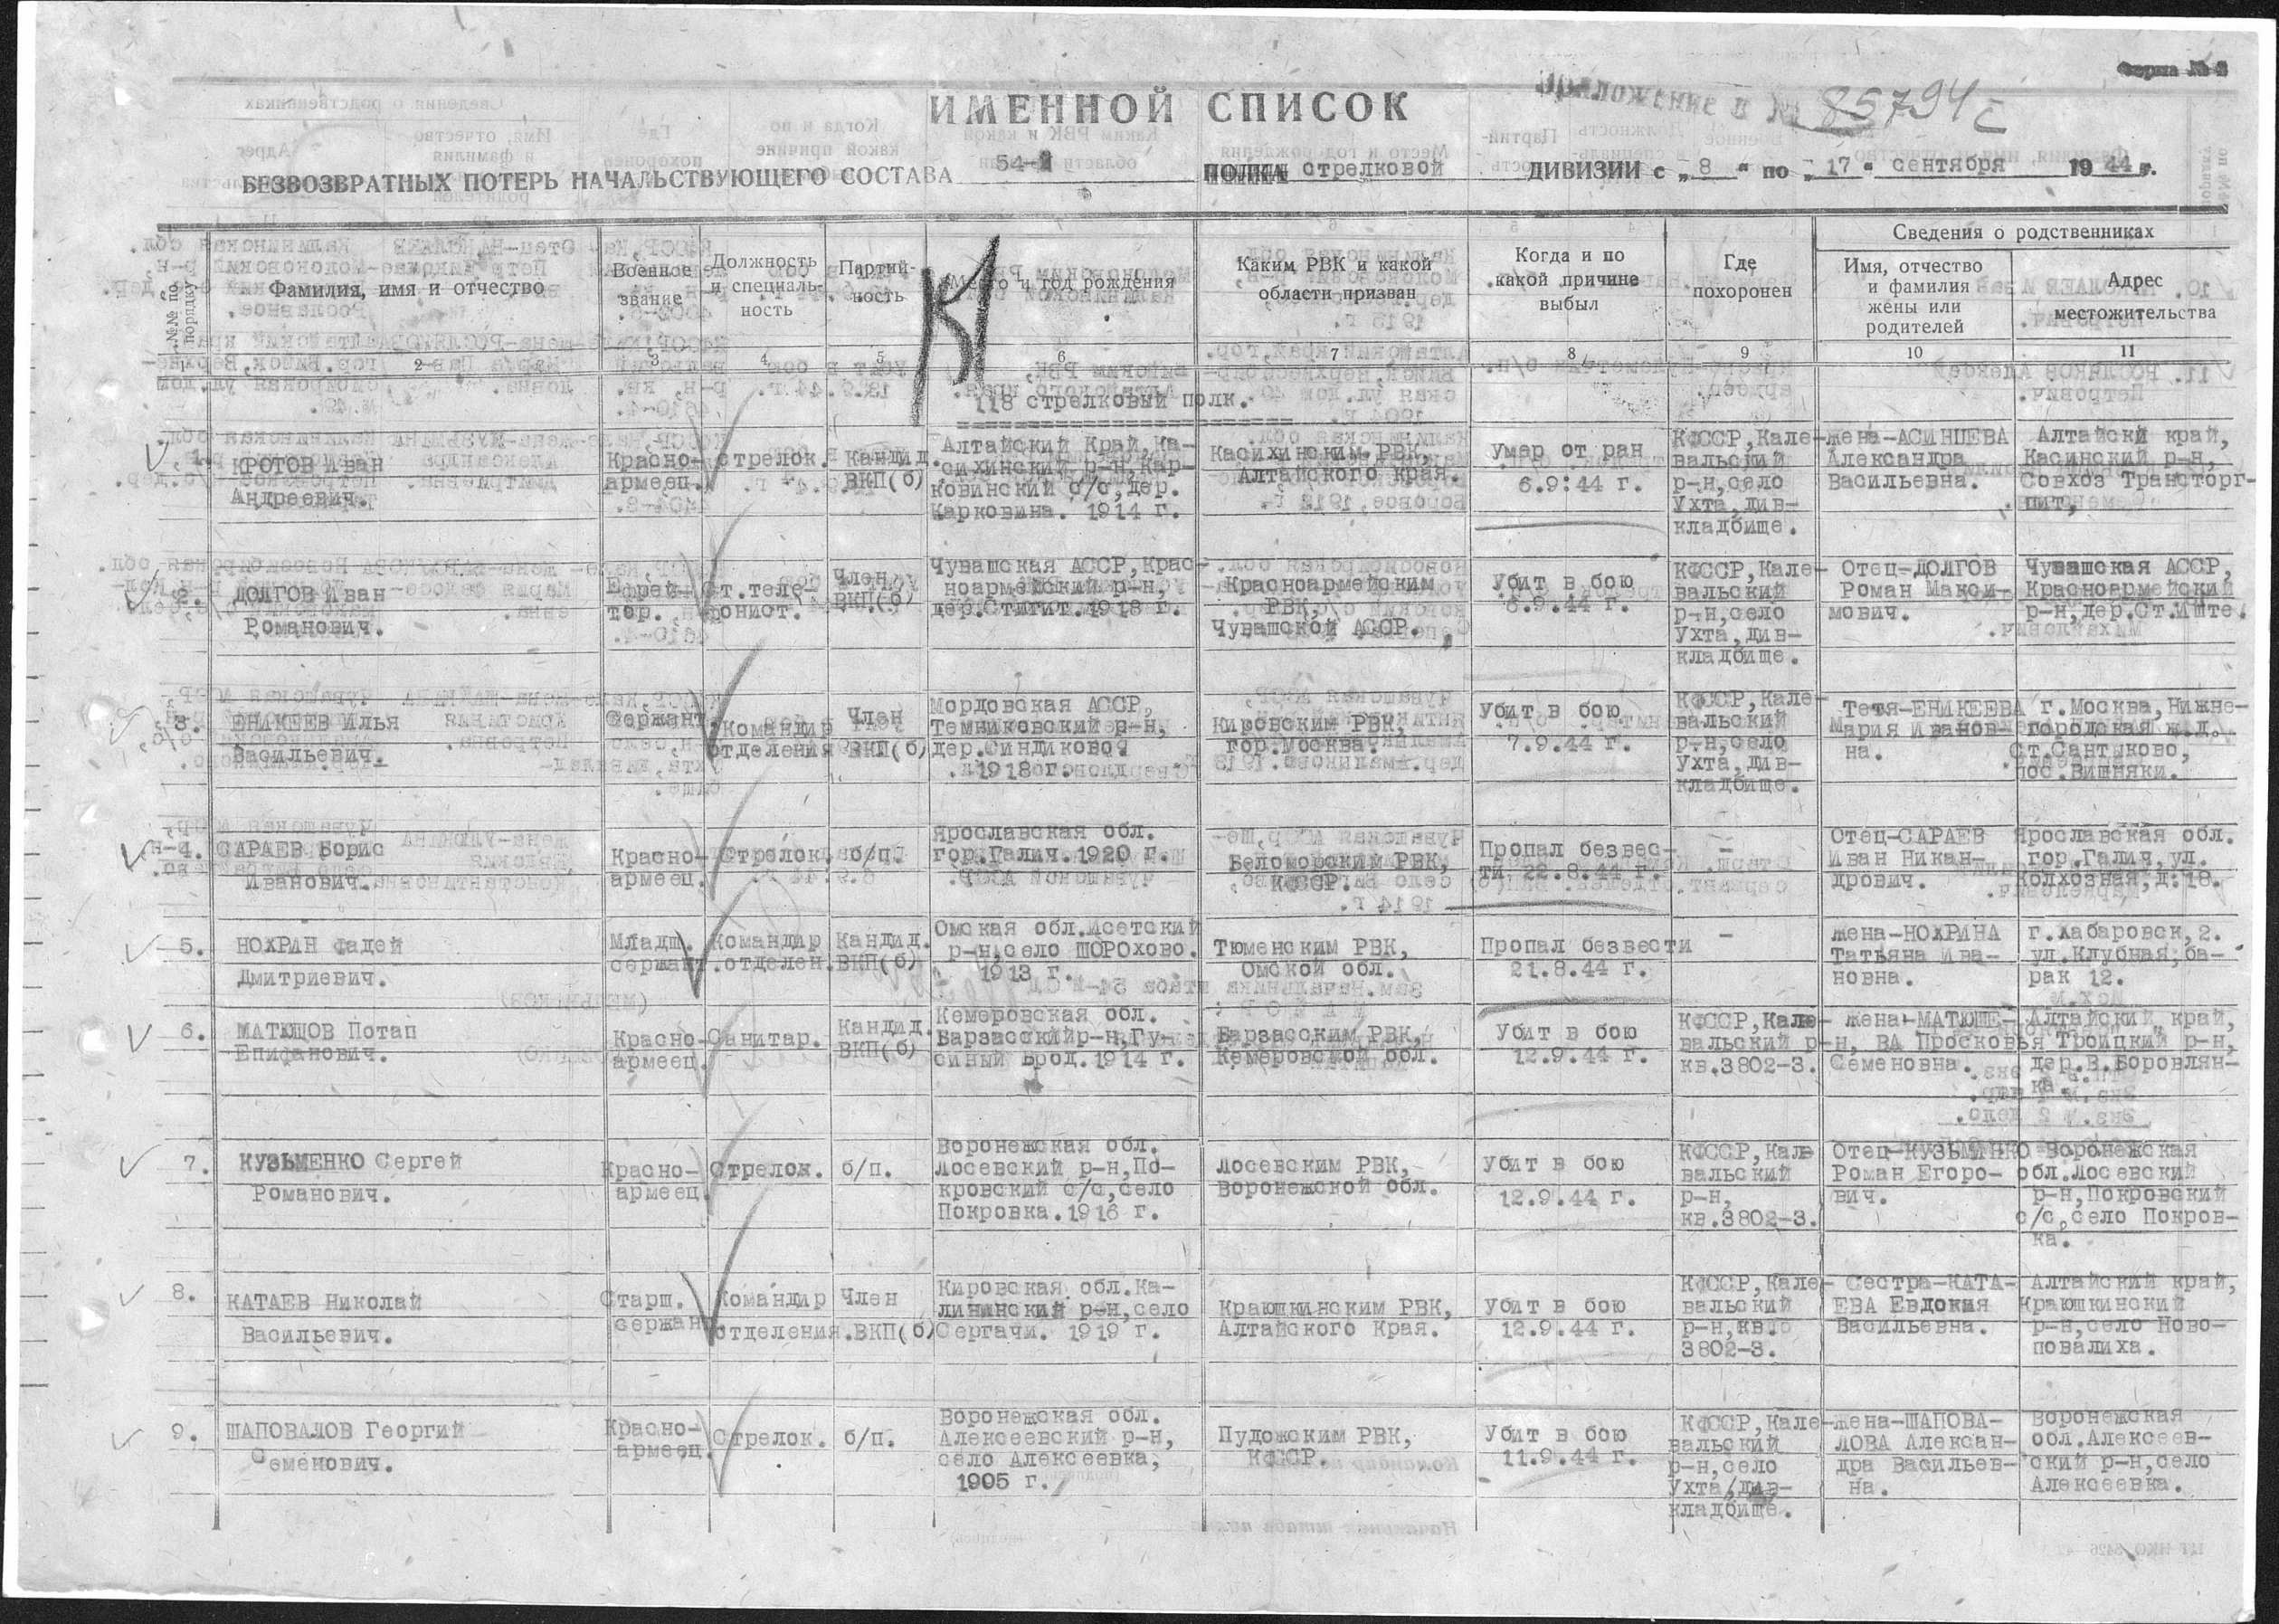 Форма № 2
Приложение к № 85794с
ИМЕННОЙ СПИСОК
БЕЗВОЗВРАТНЫХ ПОТЕРЬ НАЧАЛЬСТВУЮЩЕГО СОСТАВА 54-й ПОЛКА стрелковой ДИВИЗИИ с „8“ по „17“ сентября 1944 г.
№№ по порядку
Фамилия, имя и отчество
Военное звание
Должность и специальность
Партийность
Место и год рождения
Каким РВК и какой области призван
Когда и по какой причине выбыл
Где похоронен
Сведения о родственниках
Имя, отчество и фамилия жены или родителей
Адрес местожительства
1 2 3 4 5 6 7 8 9 10 11
118 стрелковый полк.
1.
КРОТОВ Иван
Андреевич.
Красно-
армеец.
стрелок.
Кандид.
ВКП(б)
Алтайский Край, Ка-
сихинский р-н, Кар-
ковинский с/с, дер.
Карковина. 1914 г.
Касихинским РВК,
Алтайского края.
Умер от ран
6.9:44 г.
КФССР, Кале-
вальский
р-н, село
Ухта, див-
кладбище.
жена-АСИНЦЕВА
Александра
Васильевна.
Алтайскй край,
Касинский р-н,
Совхоз Трансторг-
пит,
2.
ДОЛГОВ Иван
Романович.
Ефрей-
тор.
Ст.теле-
фонист.
Член
ВКП(б)
Чувашская АССР, Крас-
ноармейский р-н,
дер.Стигит. 1918 г.
Красноармейским
РВК,
Чувашской АССР.
Убит в бою
8.9.44 г.
КФССР, Кале-
вальский
р-н, село
Ухта, див-
кладбище.
Отец-ДОЛГОВ
Роман Макси-
мович.
Чувашская АССР,
Красноармейский
р-н, дер.Ст.Иште.
3.
ЕНИКЕЕВ Илья
Васильевич.
Сержант
Командир
отделения
Член
ВКП(б)
Мордовская АССР,
Темниковский р-н,
дер.Синдиково
1918 г.
Кировским РВК,
гор.Москва.
Убит в бою
7.9.44 г.
КФССР, Кале-
вальский
р-н, село
Ухта, див-
кладбище.
Тетя-ЕНИКЕЕВА
Мария Иванов-
на.
г.Москва, Нижне-
городская ж.д.
Ст.Сантыково,
пос.Вишняки.
4.
САРАЕВ Борис
Иванович.
Красно-
армеец.
Стрелок.
б/п.
Ярославская обл.
гор.Галич. 1920 г.
Беломорским РВК,
КФССР.
Пропал безвес-
ти 22.8.44 г.
-
Отец-САРАЕВ
Иван Никан-
дрович.
Ярославская обл.
гор.Галич, ул.
Колхозная, д:18.
5.
НОХРИН Фадей
Дмитриевич.
Младш.
сержант.
Командир
отделен.
Кандид.
ВКП(б)
Омская обл.Исетский
р-н, село ШОРОХОВО.
1913 г.
Тюменским РВК,
Омской обл.
Пропал безвести
21.8.44 г.
-
жена-НОХРИНА
Татьяна Ива-
новна.
г.Хабаровск, 2.
ул.Клубная, ба-
рак 12.
6.
МАТЮШОВ Потап
Епифанович.
Красно-
армеец.
Санитар.
Кандид.
ВКП(б)
Кемеровская обл.
Барзасский р-н, Гу-
синый Брод. 1914 г.
Барзасским РВК,
Кемеровской обл.
Убит в бою
12.9.44 г.
КФССР, Кале-
вальский р-н,
кв.3802-3.
жена-МАТЮШЕ-
ВА Просковья
Семеновна.
Алтайский край,
Троицкий р-н,
дер.В.Боровлян-
ка.
7.
КУЗЬМЕНКО Сергей
Романович.
Красно-
армеец.
Стрелок.
б/п.
Воронежская обл.
Лосевский р-н, По-
кровский с/с, село
Покровка. 1916 г.
Лосевским РВК,
Воронежской обл.
Убит в бою
12.9.44 г.
КФССР, Кале
вальский
р-н,
кв.3802-3.
Отец-КУЗЬМИНКО
Роман Егоро-
вич.
Воронежская
обл.Лосевский
р-н, Покровский
с/с, село Покров-
ка.
8.
КАТАЕВ Николай
Васильевич.
Старш.
сержант
Командир
отделения.
Член
ВКП(б)
Кировская обл.Ка-
лининский р-н, село
Сергачи. 1919 г.
Краюшкинским РВК,
Алтайского Края.
Убит в бою
12.9.44 г.
КФССР, Кале-
вальский
р-н, кв.
3802-3.
Сестра-КАТА-
ЕВА Евдокия
Васильевна.
Алтайский край,
Краюшкинский
р-н, село Ново-
повалиха.
9.
ШАПОВАЛОВ Георгий
Семенович.
Красно-
армеец.
Стрелок.
б/п.
Воронежская обл.
Алексеевский р-н,
село Алексеевка,
1905 г.
Пудожским РВК,
КФССР.
Убит в бою
11.9.44 г.
КФССР, Кале-
вальский
р-н, село
Ухта, див-
кладбище.
жена-ШАПОВА-
ЛОВА Алексан-
дра Васильев-
на.
Воронежская
обл.Алексеев-
ский р-н, село
Алексеевка.